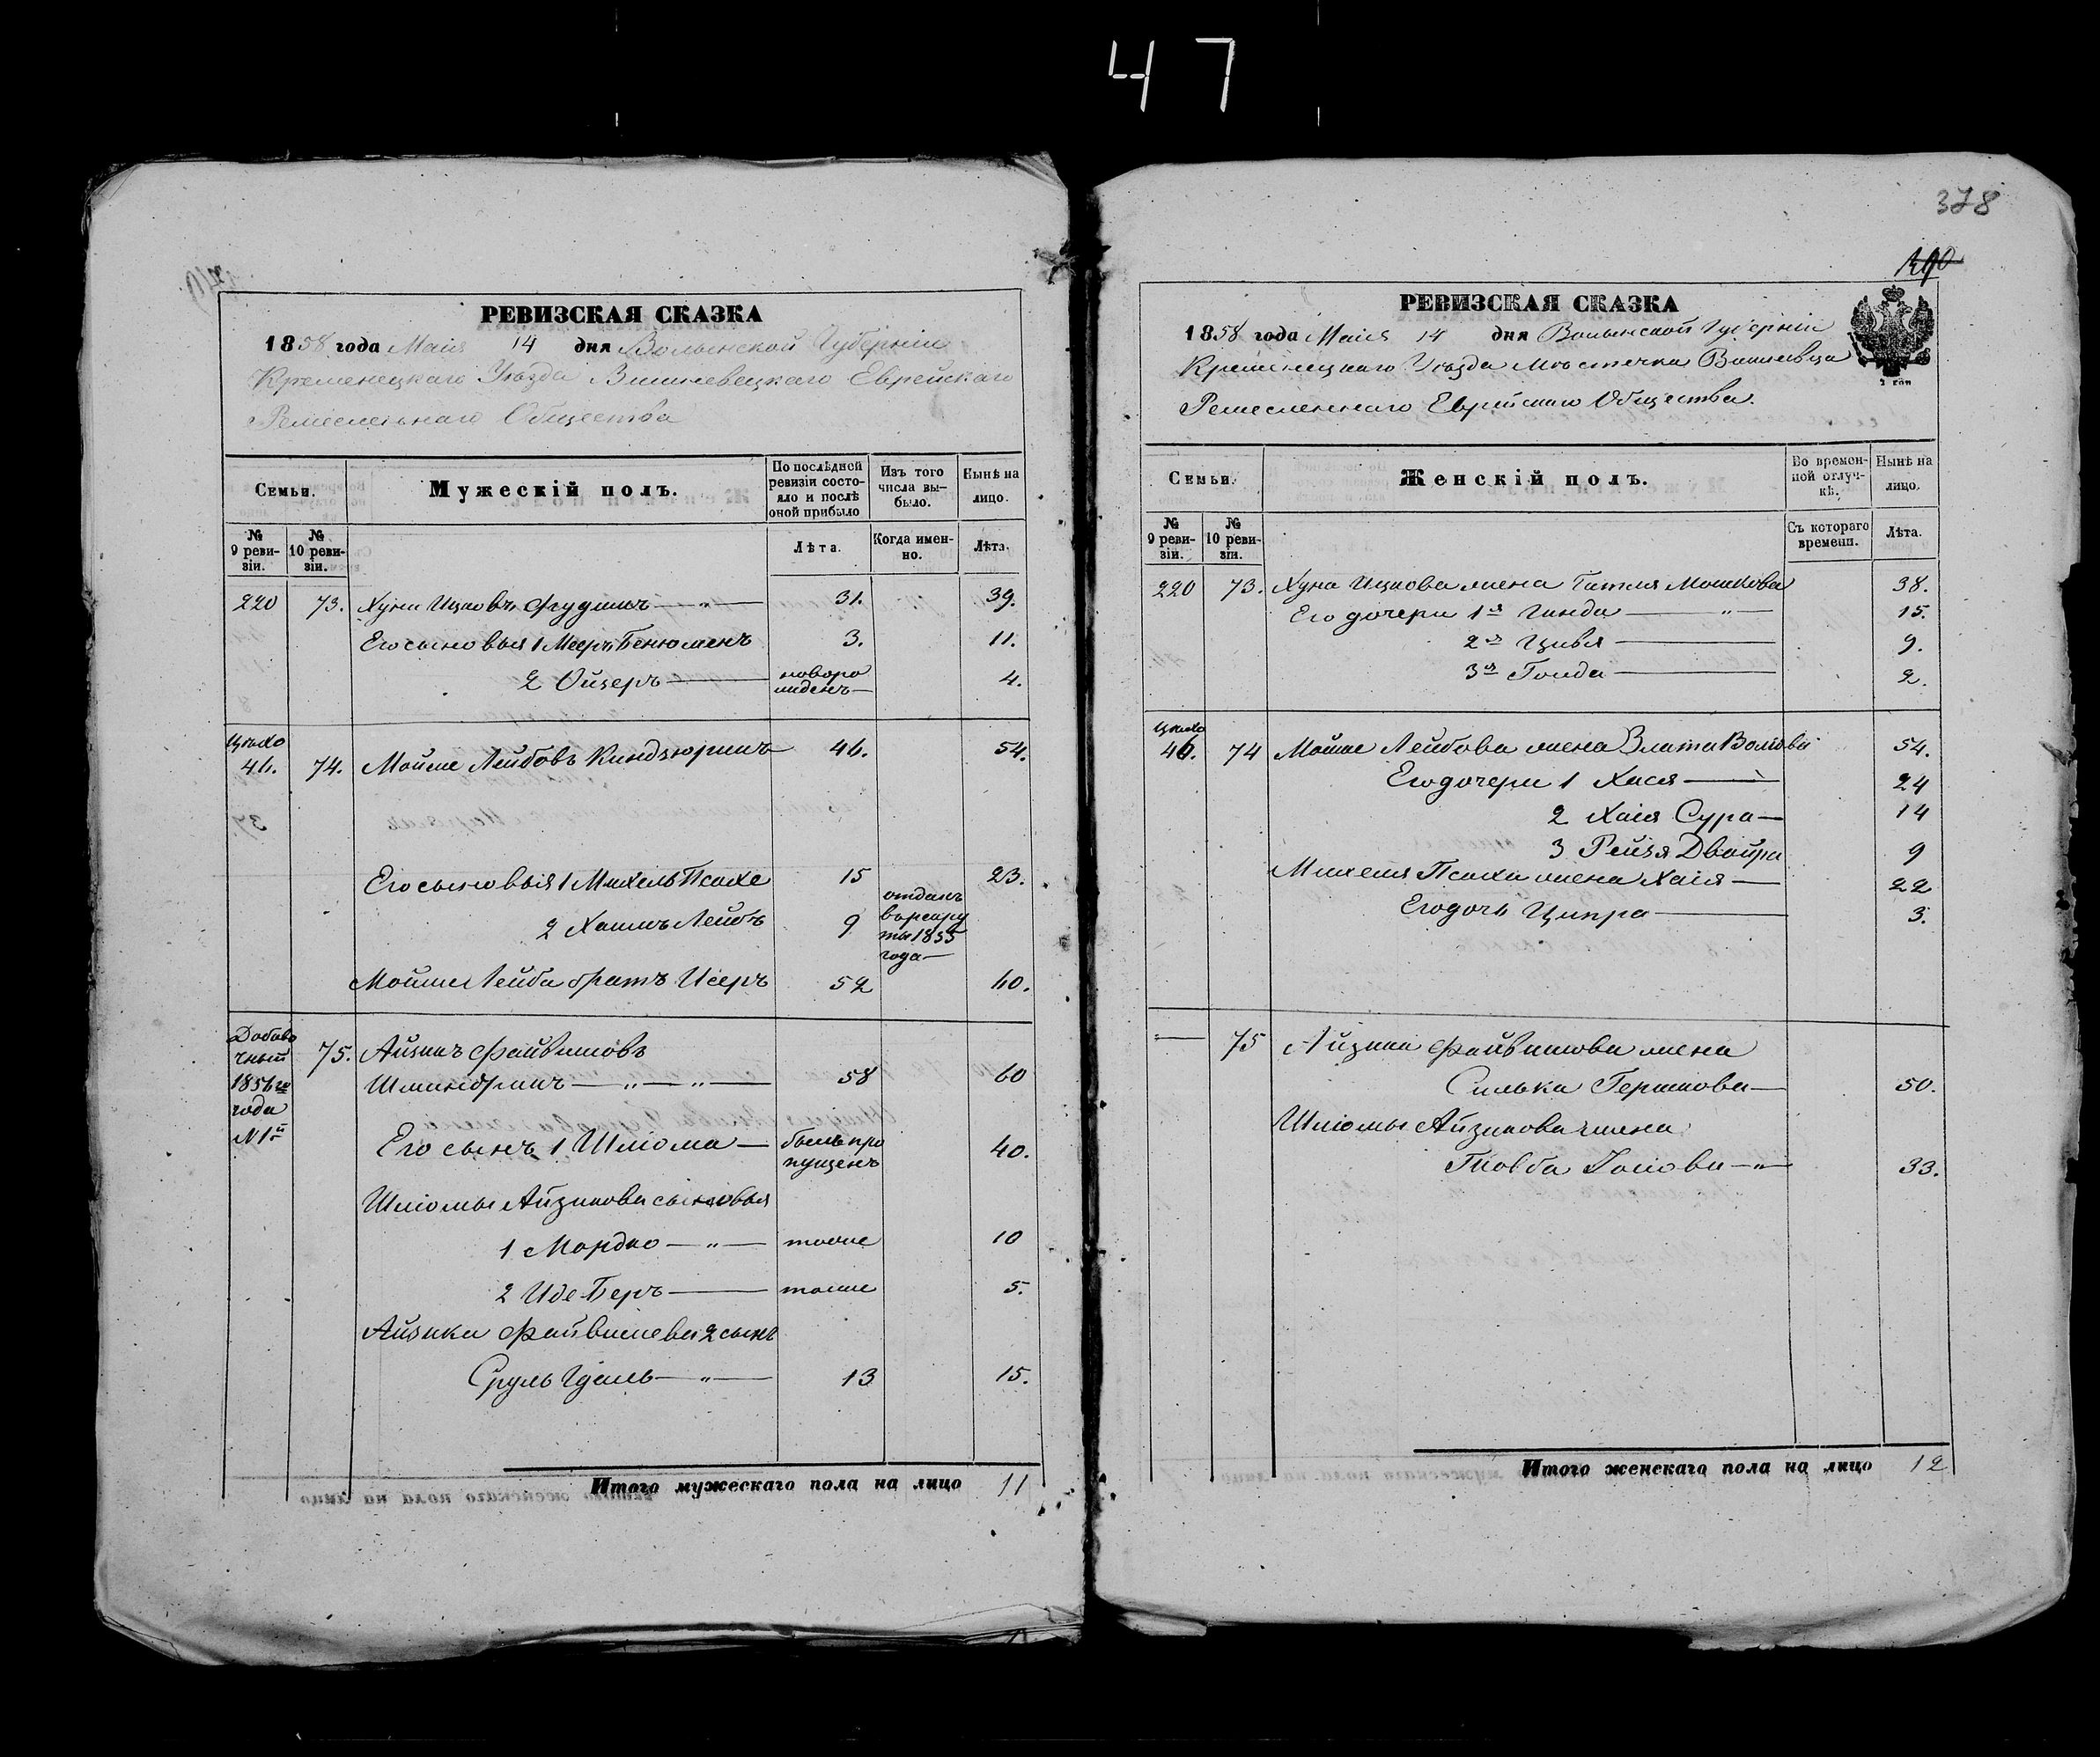 47
378
РЕВИЗСКАЯ СКАЗКА
1858 года Маія 14 дня Волынской Губерніи
Кременецкаго Уѣзда Вишневецкаго Еврейскаго
Ремесленнаго Общества
Семьи.
Мужескій полъ.
По послѣдней ревизіи состояло и послѣ оной прибыло
Изъ того числа выбыло.
Нынѣ на лицо.
№ 9 ревизіи.
№ 10 ревизіи.
Лѣта.
Когда именно.
Лѣта.
220 73. Хуна Ицковъ 31. 39.
Его сыновья 1 Мееръ Бенюменъ 3. 11.
2 Ойзеръ новорожденъ 4.
46. 74. Мойше Лейбовъ 46. 54.
Его сыновья 1 Михель Псахе 15 23.
2 Хаимъ Лейбъ 9 отданъ въ рекруты 1855 года
Мойше Лейба братъ Исеръ 52 60.
Добавочный 1856 го года №1й
75. Айзикъ Файвишовъ
58 60
Его сынъ 1 Шліома былъ пропущенъ 40.
Шліомы Айзикова сыновья
1 Мордко тоже 10
2 Иде Беръ тоже 5.
Айзика Файвишева 2 сынъ
Сруль Гдаль 13 15.
Итого мужескаго пола на лицо 11
РЕВИЗСКАЯ СКАЗКА
1858 года Маія 14 дня Волынской Губерніи
Кременецкаго Уѣзда Мѣстечка Вишневца
Ремесленнаго Еврейскаго Общества.
2 коп
Семьи.
Женскій полъ.
Во временной отлучкѣ.
Нынѣ на лицо.
№ 9 ревизіи.
№ 10 ревизіи.
Съ котораго времени.
Лѣта.
220 73. Хуна Ицкова жена Гитля Мошкова 38.
Его дочери 1я Гинда 15.
2я Цивья 9.
3я 2.
46. 74 Мойше Лейбова жена Злата Волкова 54.
Его дочери 1 Хася 24
2 Хаія Сура 14
3 Рейзя Двойра 9
Михеля Псахи жена Хаія 22
Его дочь Ципра 3.
75 Айзика Файвишова жена
Силька Гершкова 50.
Шліомы Айзикова жена
Товба 33.
Итого женскаго пола на лицо 12